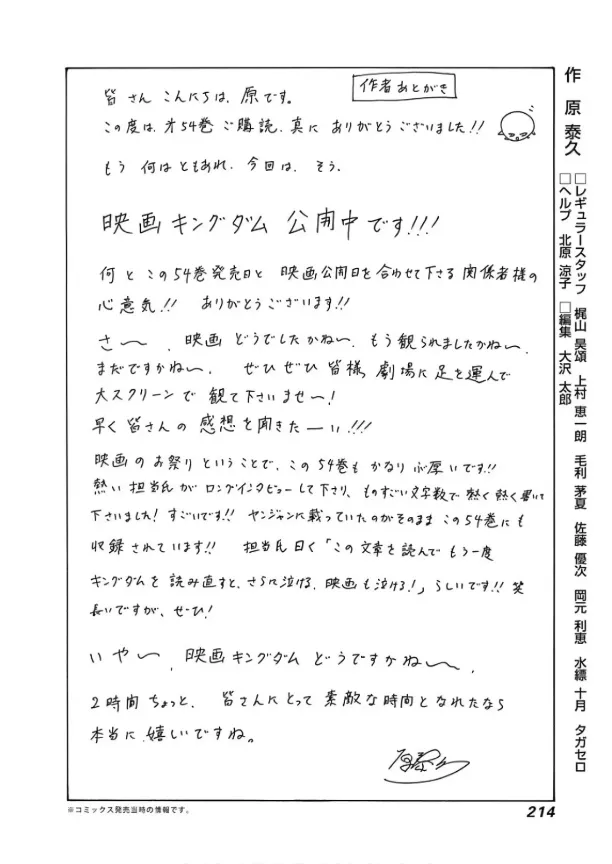 作者あとがき
皆さん こんにちは、原です。
この度は、才54巻 ご購読、真に ありがとうございました!!
もう 何はともあれ、今回は、そう、
映画キングダム 公開中です!!!
何と この54巻発売日と 映画公開日を合わせて下さる 関係者様の
心意気!! ありがとうございます!!
さ〜、映画 どうでしたかね〜、もう観られましたかね〜、
まだですかね〜、 ぜひぜひ 皆様、劇場に足を運んで
大スクリーンで 観て下さいませ〜!
早く 皆さんの 感想を聞きた―い!!!
映画のお祭り ということで、この54巻も かなり 分厚いです!!
熱い 担当氏が ロングインタビューして下さり、ものすごい文字数で 熱く熱く書いて
下さいました! すごいです!! ヤンジャンに載っていたのがそのまま この54巻にも
収録されています!! 担当氏曰く「この文章を読んで もう一度
キングダムを 読み直すと、さらに泣ける、映画も泣ける!」らしいです!! 笑
長いですが、ぜひ!
いや〜、映画キングダム どうですかね〜、
2時間ちょっと、 皆さんにとって 素敵な時間となれたなら
本当に 嬉しいですね。
原泰久
作 原 泰久
□レギュラースタッフ 梶山 昊頌 上村 恵一朗 毛利 茅夏 佐藤 優次 岡元 利恵 水縹 十月 タガセロ
□ヘルプ 北原 涼子 □編集 大沢 太郎
※コミックス発売当時の情報です。
214